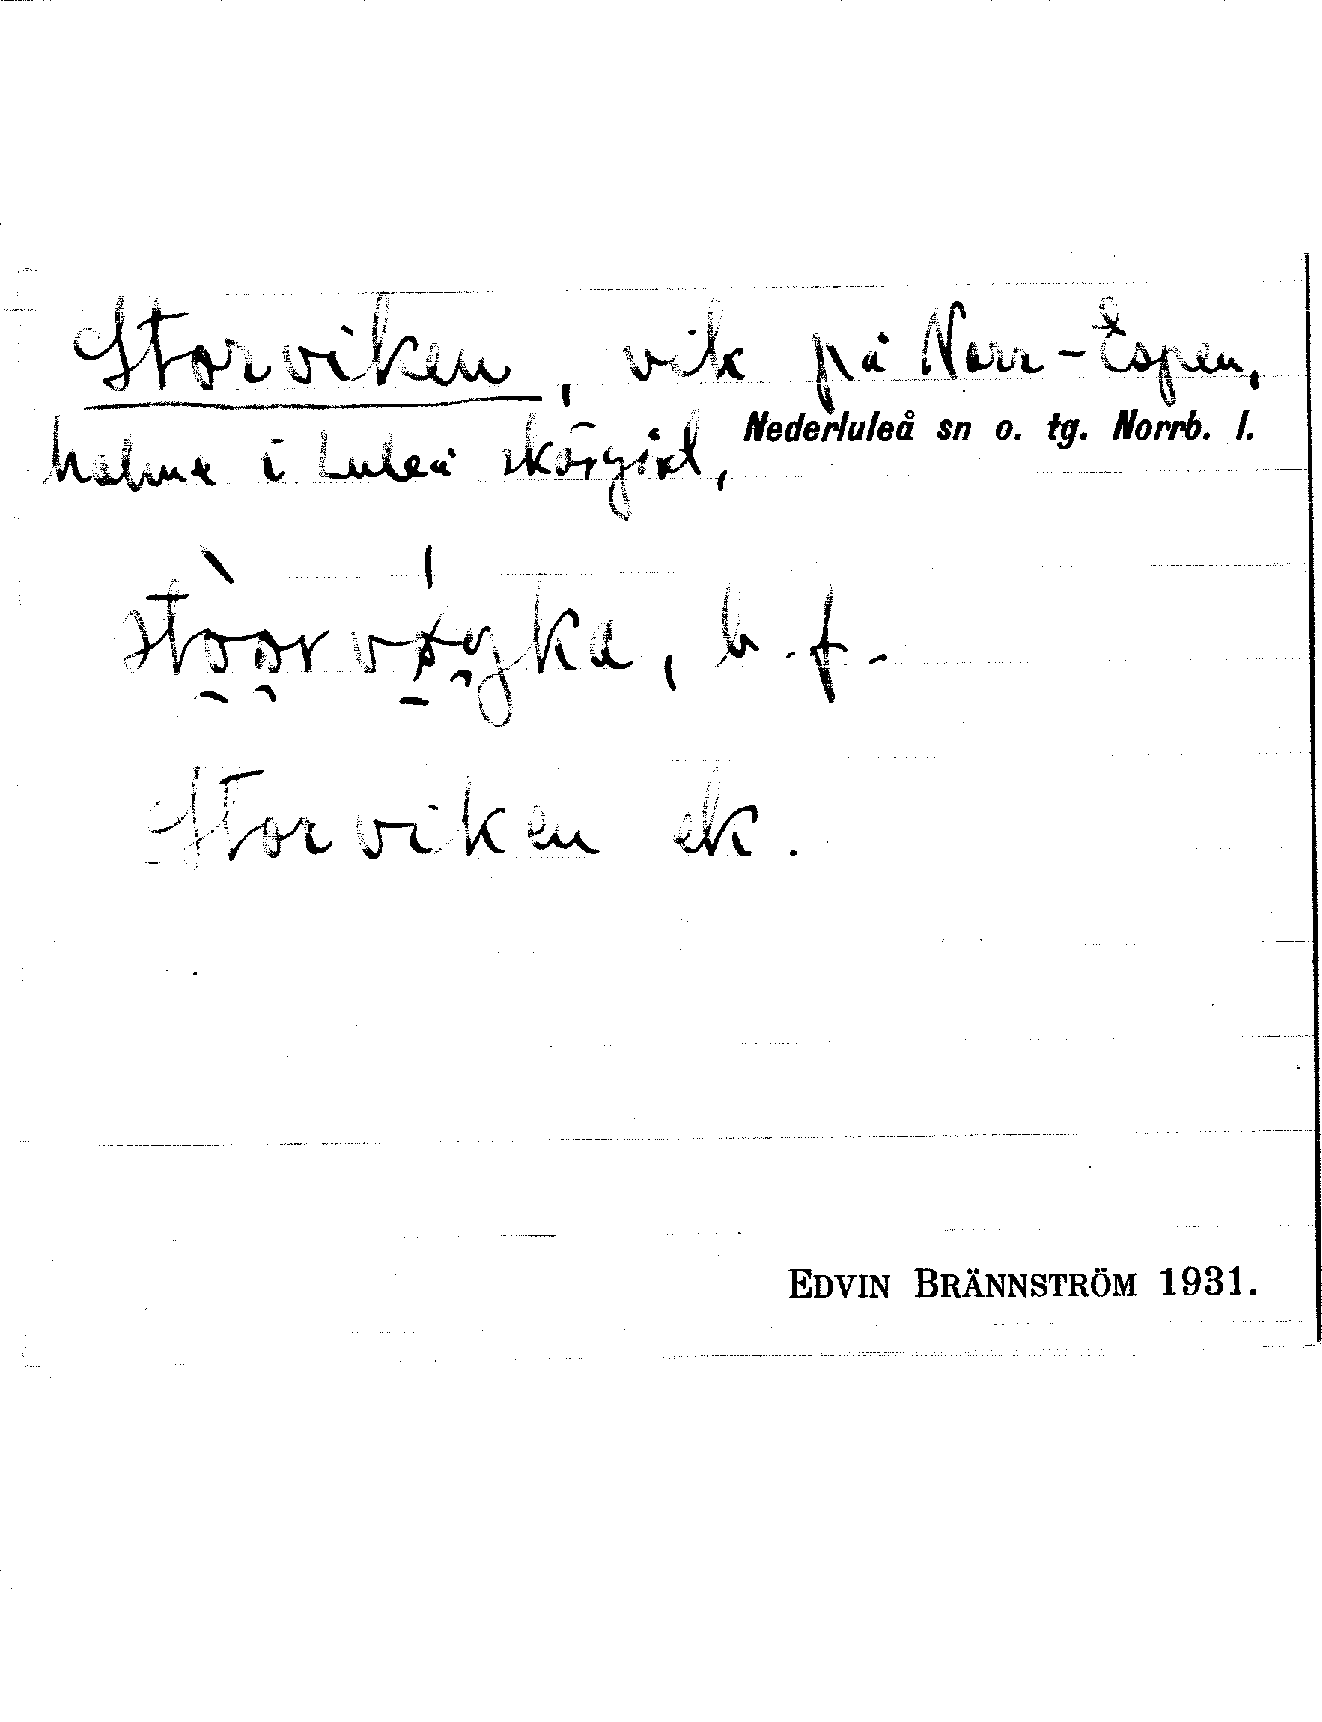 Storviken, vik på Norr-Espen,
holme i Luleå skärgård, Nederluleå sn o. tg. Norrb. l.
b. f.
Storviken ek.
EDVIN BRÄNNSTRÖM 1931.